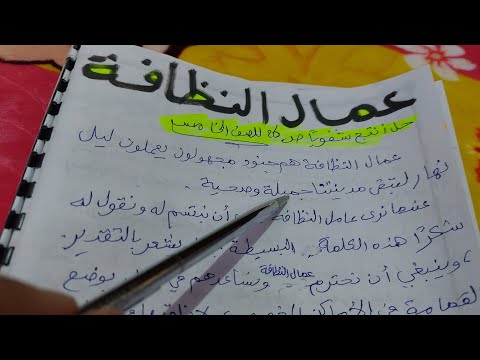 عمال النظافة
حل أنتج شفويا ص للصف الخامس
عمال النظافة هم جنود مجهولون يعملون ليل
نهار لتبقى مدينتنا جميلة وصحية.
عندما نرى عامل النظافة أن نبتسم له ونقول له
شكرًا هذه الكلمة البسيطة تشعر بالتقدير.
، وينبغي أن نحترم عمال النظافة ونساعدهم في بوضع